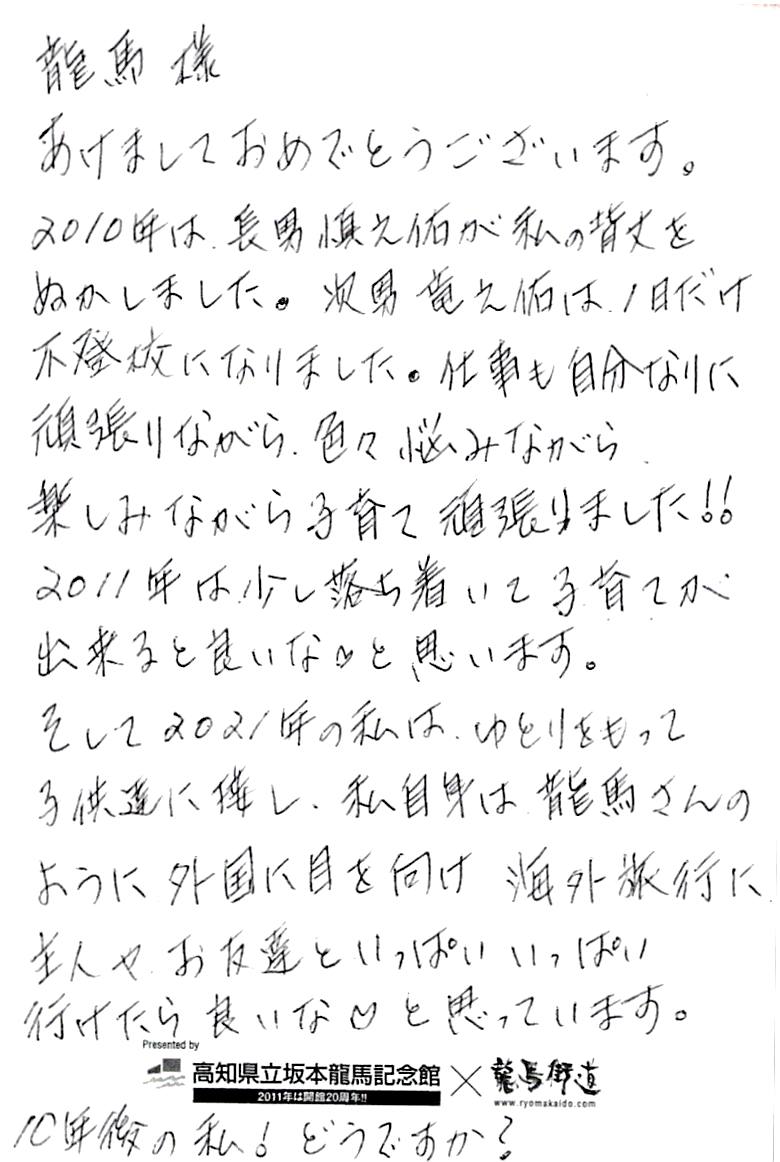 龍馬 様
あけましておめでとうございます。
2010年は、長男 慎之佑が私の背丈を
ぬかしました。次男 竜之佑は、1日だけ
不登校になりました。仕事も自分なりに
頑張りながら、色々 悩みながら、
楽しみながら子育て 頑張りました!!
2011年は、少し落ち着いて子育てが
出来ると良いな♡と思います。
そして2021年の私は、ゆとりをもって
子供達に接し、私自身は、龍馬さんの
ように外国に目を向け 海外旅行に
主人や、お友達といっぱい いっぱい
行けたら良いな♡と思っています。
Presented by
高知県立坂本龍馬記念館 × 龍馬街道
2011年は開館20周年!!
www.ryomakaido.com
10年後の私!どうですか?